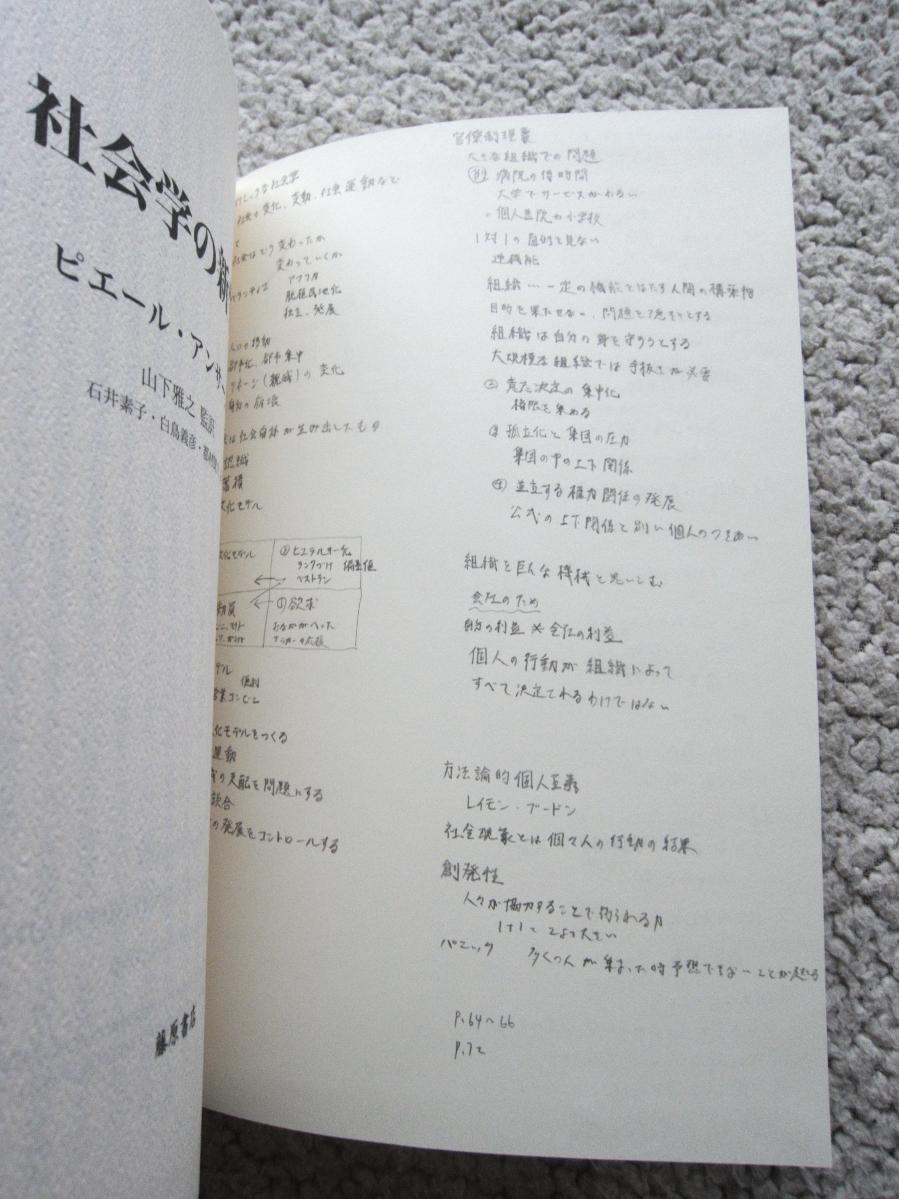 社会学の新
ピエール・アンサ
山下雅之 監訳
石井素子・白鳥義彦・都
藤原書店
社会の変化、変動、社会運動など
社会はどう変わったか
変わっていくか
アフリカ
脱植民地化
独立、発展
人口の移動
都市化、都市集中
リネージ(親族)の変化
の崩壊
は社会自体が生み出したもの
知識
蓄積
文化モデル
文化モデル
②ヒエラルキー化
ランクづけ 偏差値
ベストテン
動員
①欲求
おなかがへった
サッカーの応援
デル
便利
営業コンビニ
化モデルをつくる
運動
の支配を問題にする
談合
の発展をコントロールする
官僚制現象
大きな組織での問題
例 病院の待時間
大学でサービスがわるい
個人医院や小学校
1対1の目的を見ない
逆機能
組織…一定の機能をはたす人間の構築物
目的を果たせない、問題を隠そうとする
組織は自分の身を守ろうとする
大規模な組織では手抜きが必要
② 決定の集中化
権限を集める
③ 孤立化と集団の圧力
集団の中の上下関係
④ 並立する権力関係の発展
公式の上下関係と別に個人のつきあい
組織を巨大な機械と思いこむ
会社のため
の利益 ≠ 会社の利益
個人の行動が組織によって
すべて決定されるわけではない
方法論的個人主義
レイモン・ブードン
社会現象とは個々人の行動の結果
創発性
人々が協力することで得られる力
1+1= 2より大きい
パニック 多くの人が集まった時予想できないことが起る
P.64~66
P.72